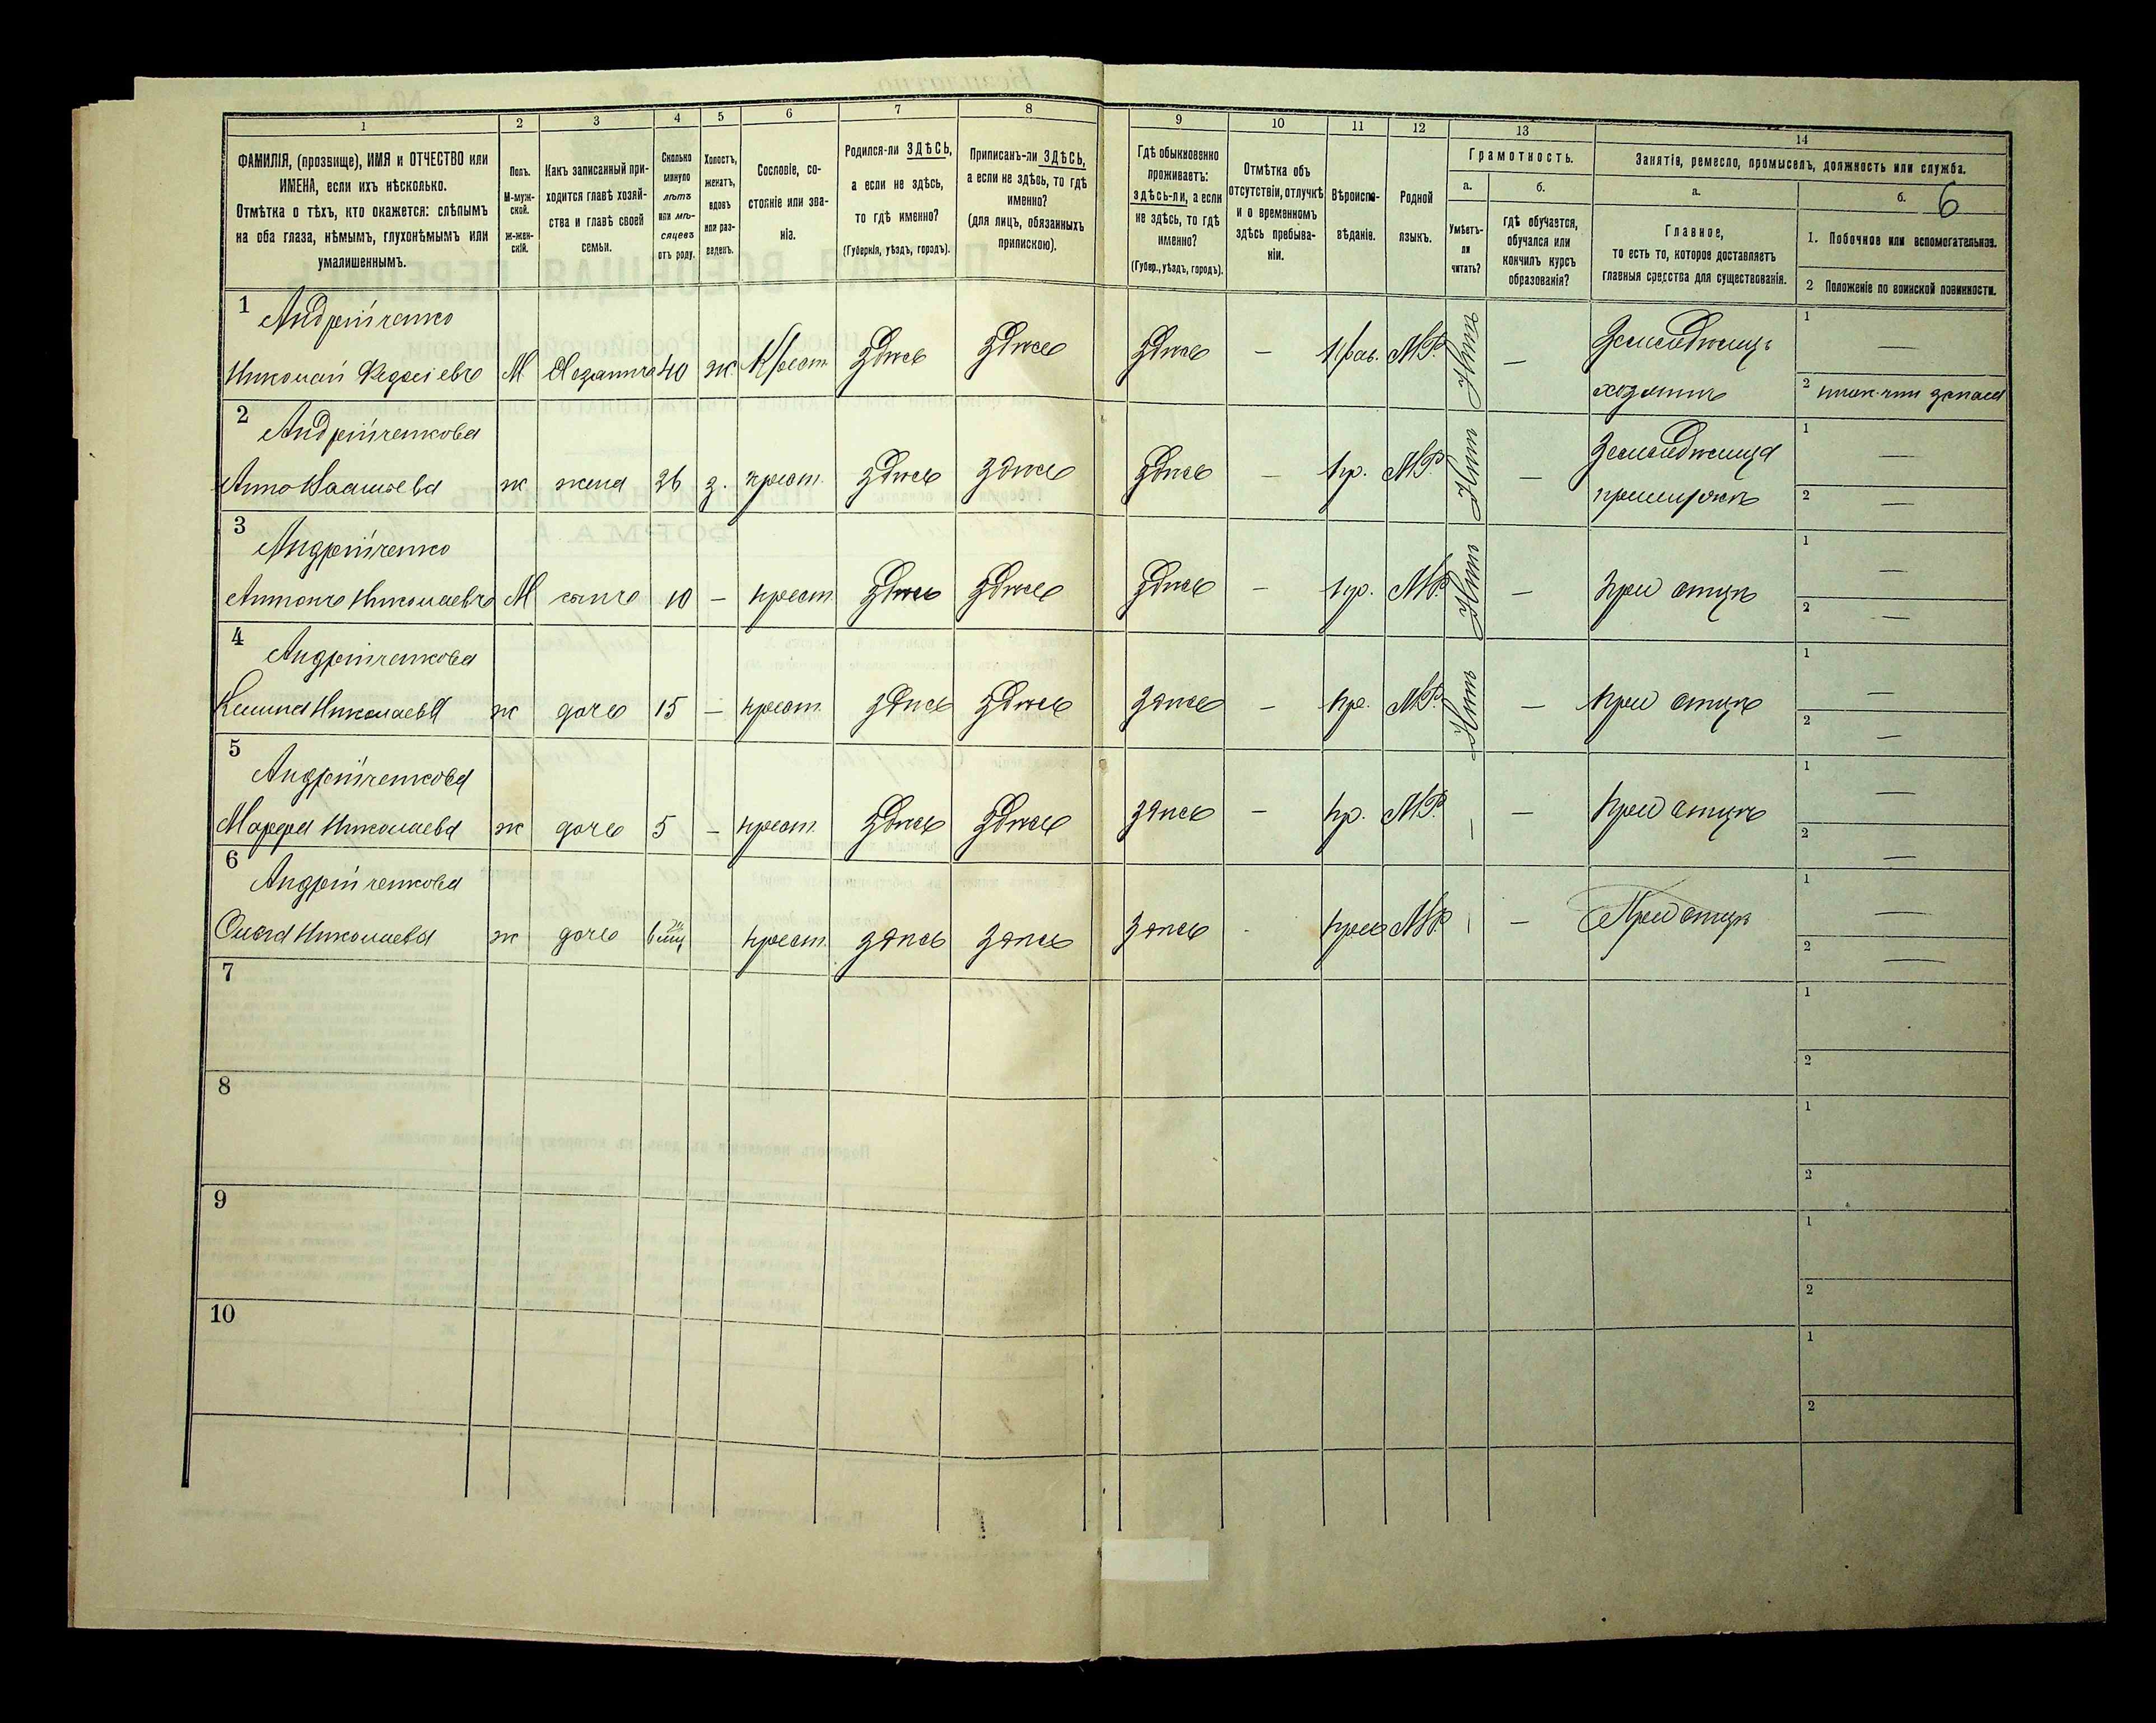 1
2
3
4
5
6
7
8
ФАМИЛІЯ, (прозвище), ИМЯ и ОТЧЕСТВО или
ИМЕНА, если ихъ нѣсколько.
Отмѣтка о тѣхъ, кто окажется: слѣпымъ
на оба глаза, нѣмымъ, глухонѣмымъ или
умалишеннымъ.
Полъ.
М-муж-
ской.
ж-жен-
скій.
Какъ записанный при-
ходится главѣ хозяй-
ства и главѣ своей
семьи.
Сколько
минуло
лѣтъ
или мѣ-
сяцевъ
отъ роду.
Холостъ,
женатъ,
вдовъ
или раз-
веденъ.
Сословіе, со-
стояніе или зва-
ніе.
Родился-ли ЗДѢСЬ,
а если не здѣсь,
то гдѣ именно?
(Губернія, уѣздъ, городъ).
Приписанъ-ли ЗДѢСЬ,
а если не здѣсь, то гдѣ
именно?
(для лицъ, обязанныхъ
припискою).
9
10
11
12
13
14
Гдѣ обыкновенно
проживаетъ:
здѣсь-ли, а если
не здѣсь, то гдѣ
именно?
(Губер., уѣздъ, городъ).
Отмѣтка объ
отсутствіи, отлучкѣ
и о временномъ
здѣсь пребыва-
ніи.
Вѣроиспо-
вѣданіе.
Родной
языкъ.
Грамотность.
а.
б.
Умѣетъ-
ли
читать?
гдѣ обучается,
обучался или
кончилъ курсъ
образованія?
Занятія, ремесло, промыселъ, должность или служба.
а.
б.
6
Главное,
то есть то, которое доставляетъ
главныя средства для существованія.
1. Побочное или вспомогательное.
2 Положеніе по воинской повинности.
1
Андрейченко
Николай М 40 ж. Крест. здѣсь здѣсь здѣсь — М.Р. Нѣтъ —
1 —
2
2
Андрейченкова
Анна ж жена крест. здѣсь здѣсь здѣсь — М.Р. Нѣтъ —
1 —
2 —
3
Андрейченко
Антонъ Николаевъ М сынъ 10 — крест. здѣсь здѣсь здѣсь — пр. М.Р. Нѣтъ — при отцѣ
1 —
2 —
4
Андрейченкова
Николаева ж дочь 15 — крест. здѣсь здѣсь здѣсь — пр. М.Р. Нѣтъ — при отцѣ
1 —
2 —
5
Андрейченкова
Марфа Николаева ж дочь 5 — крест. здѣсь здѣсь здѣсь — пр. М.Р. — — при отцѣ
1 —
2 —
6
Андрейченкова
Николаева ж дочь крест. здѣсь здѣсь здѣсь М.Р. — при отцѣ
1 —
2 —
7
1
2
8
1
2
9
1
2
10
1
2